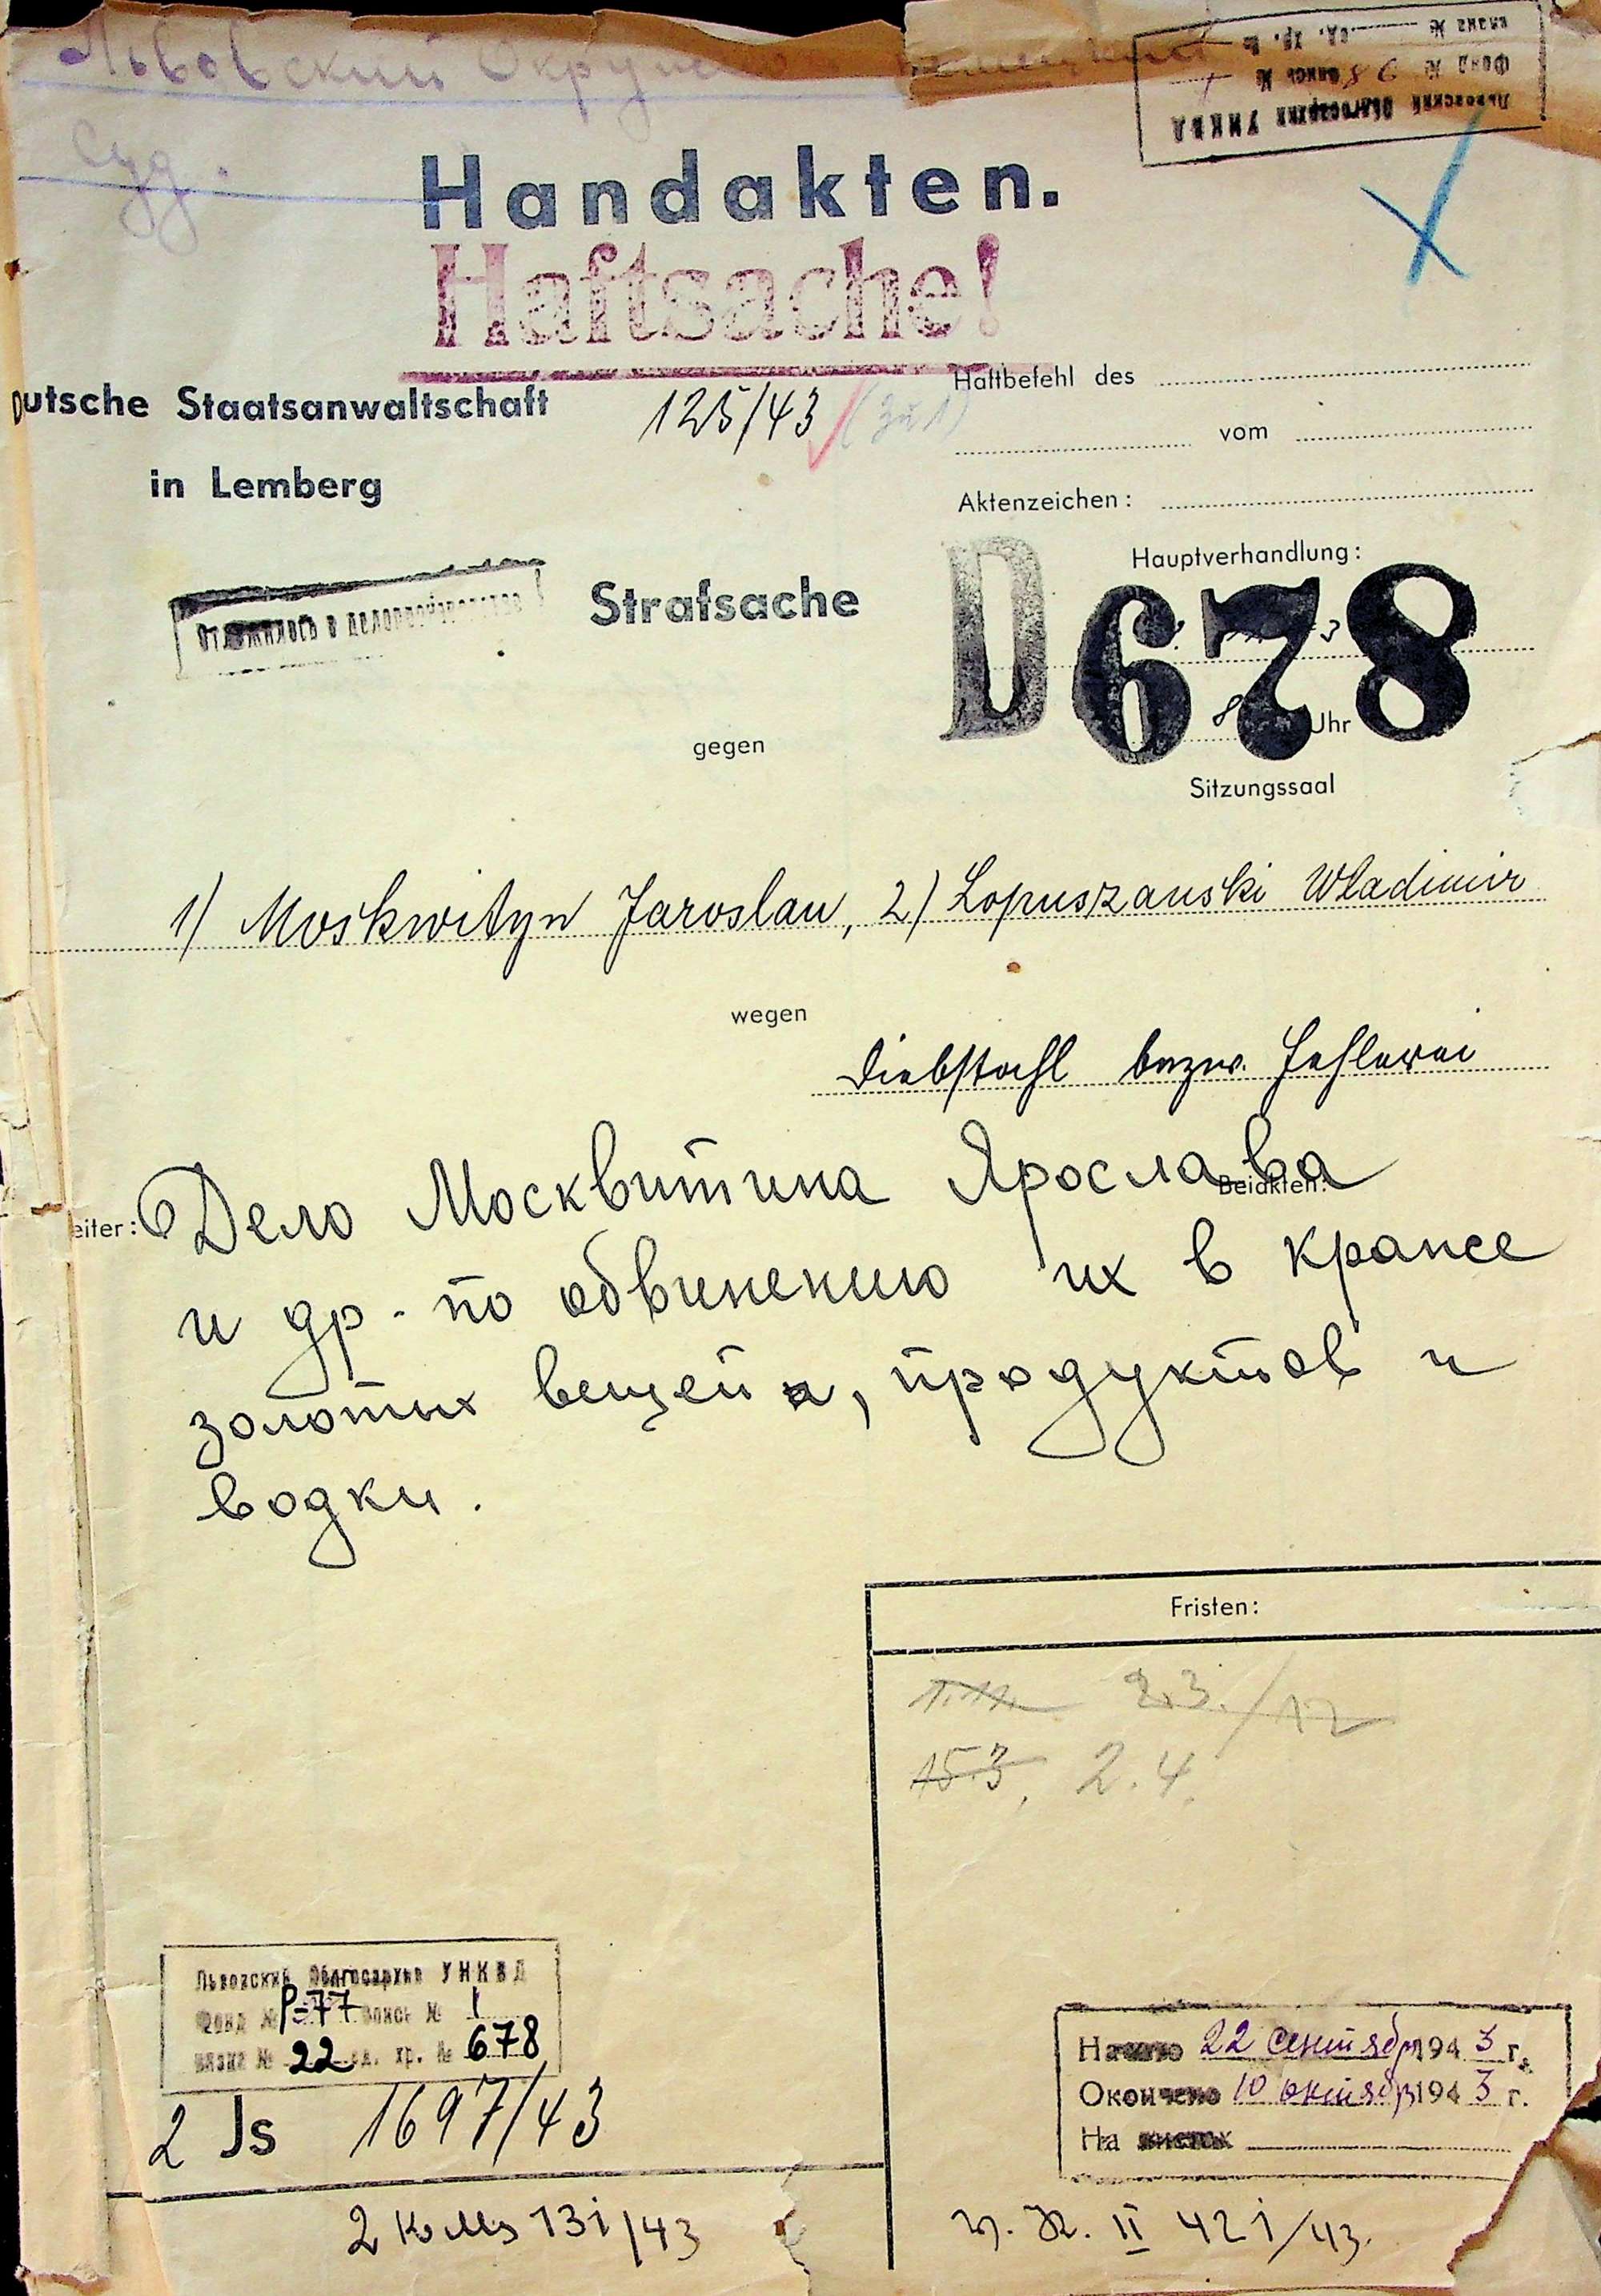 Львовский Окружной
Суд.
Львовский Облгосархив УНКВД
Фонд № опись №
вязка № ед. хр. №
Handakten.
Haftsache!
utsche Staatsanwaltschaft
125/43 (zu 1)
in Lemberg
Haftbefehl des
vom
Aktenzeichen:
Hauptverhandlung:
Strafsache
D 678
8 Uhr
gegen
Sitzungssaal
1) Moskwityn Jaroslau, 2) Lopuszanski Wladimir
wegen
Diebstahl bezw. Hehlerei
Beiakten:
eiter:
Дело Москвитина Ярослава
и др. по обвинению их в краже
золотых вещей, продуктов и
водки.
Fristen:
2.3./12
15.3, 2.4.
Львовский Облгосархив УНКВД
Фонд № Р-77 опись № 1
вязка № 22 ед. хр. № 678
2 Js 1697/43
Начато 22 сентября 1943 г.
Окончено 10 октября 1943 г.
На листах
2 KMs 131/43
II 421/43.